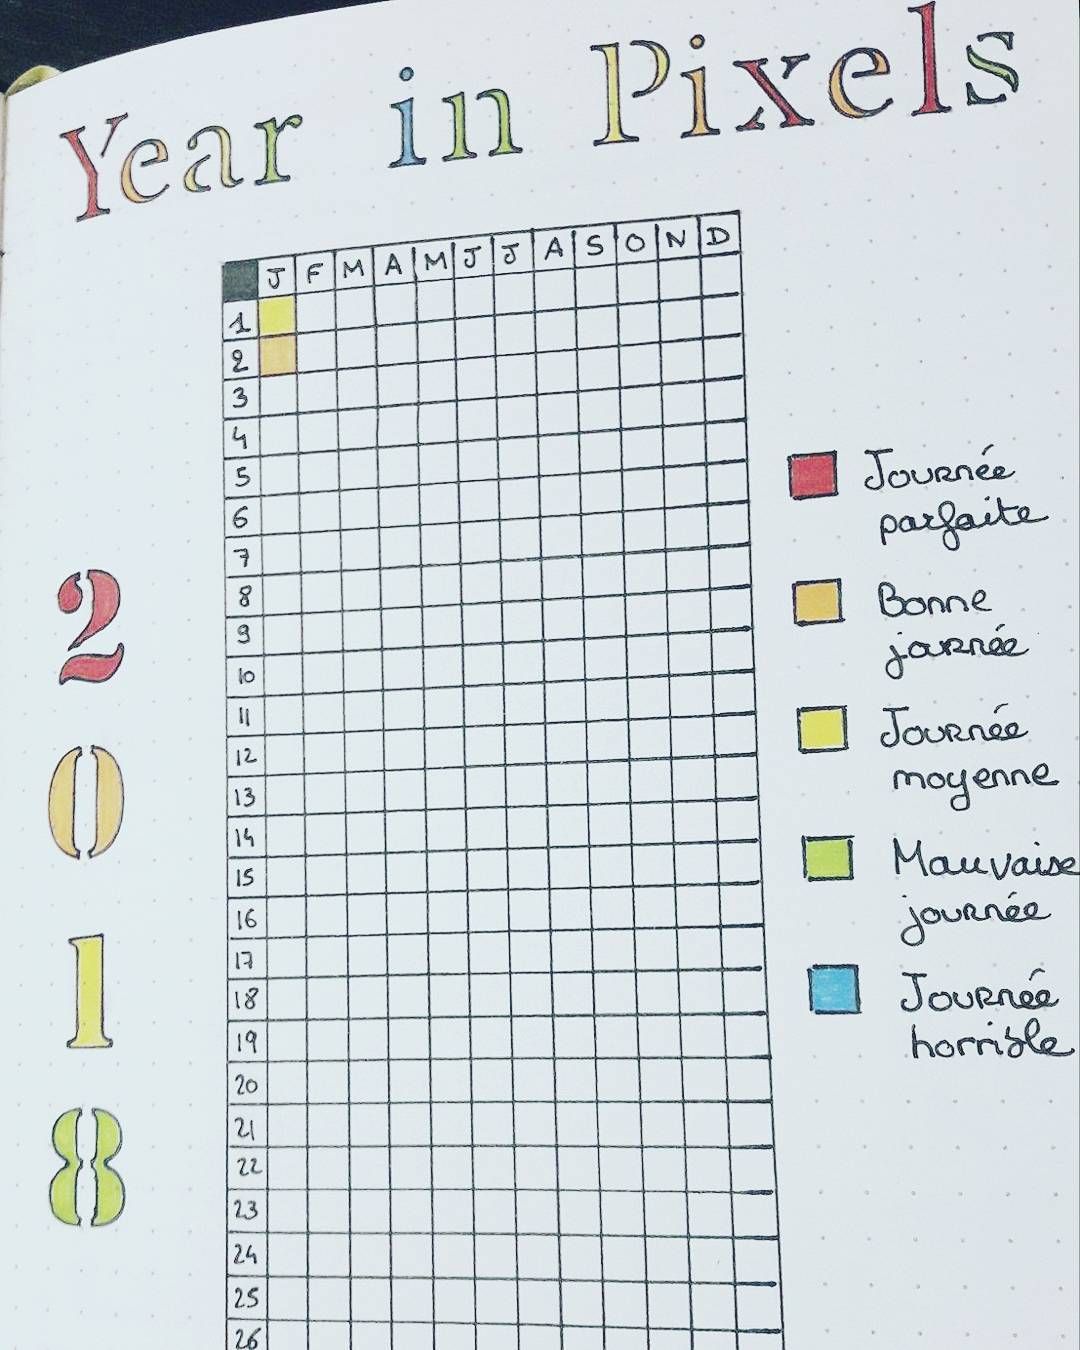 Year in Pixels
J F M A M J J A S O N D
1
2
3
4
5
6
7
8
9
10
11
12
13
14
15
16
17
18
19
20
21
22
23
24
25
26
2
0
1
8
Journée
parfaite
Bonne
journée
Journée
moyenne
Mauvaise
journée
Journée
horrible